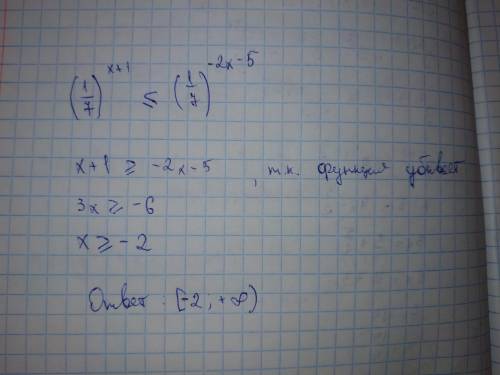 (1/7)^(x+1) ≤ (1/7)^(-2x-5)
x+1 ≥ -2x-5 , т.к. функция убывает
3x ≥ -6
x ≥ -2
Ответ: [-2; +∞)